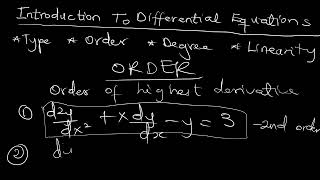 Introduction To Differential Equations
*Type *Order *Degree *Linearity
ORDER
Order of highest derivative
① d²y/dx² + x dy/dx - y = 3 - 2nd order
② dy